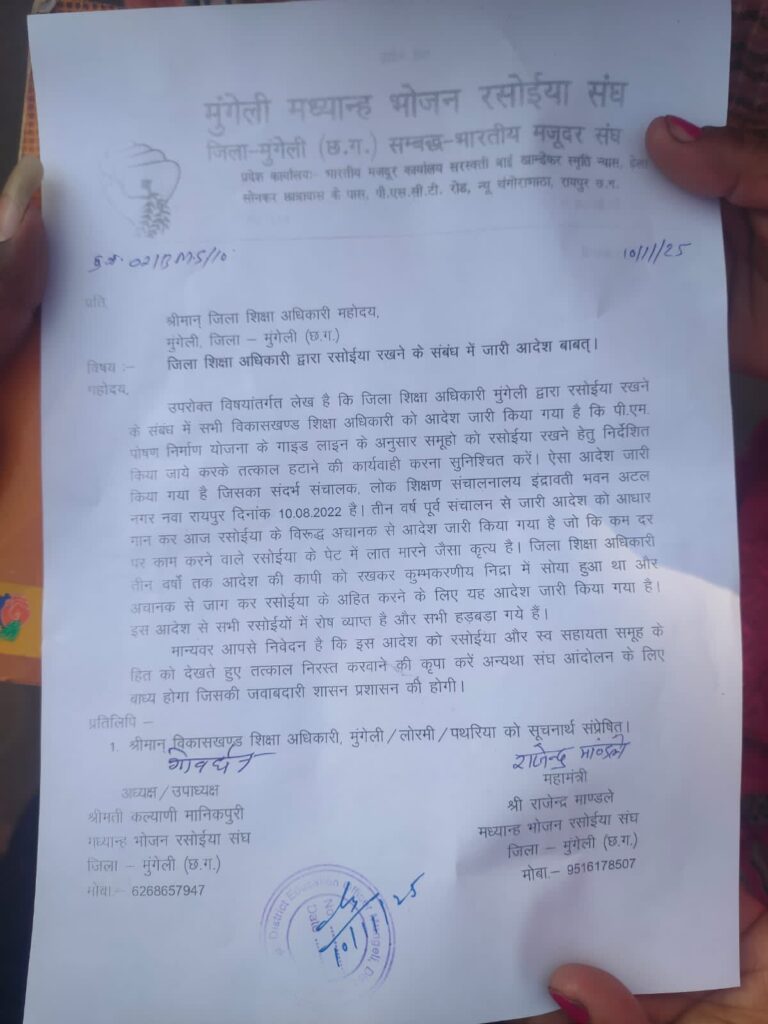 मुंगेली मध्यान्ह भोजन रसोईया संघ
जिला-मुंगेली (छ.ग.) सम्बद्ध-भारतीय मजूदर संघ
प्रदेश कार्यालयः- भारतीय मजदूर कार्यालय सरस्वती बाई खान्डेकर स्मृति न्यास,
सोनकर छात्रावास के पास, पी.एस.सी.टी. रोड, न्यू चंगोराभाठा, रायपुर छ.ग.
10/1/25
प्रति,
श्रीमान् जिला शिक्षा अधिकारी महोदय,
मुंगेली, जिला – मुंगेली (छ.ग.)
विषय :– जिला शिक्षा अधिकारी द्वारा रसोईया रखने के संबंध में जारी आदेश बाबत्।
महोदय,
उपरोक्त विषयांतर्गत लेख है कि जिला शिक्षा अधिकारी मुंगेली द्वारा रसोईया रखने
के संबंध में सभी विकासखण्ड शिक्षा अधिकारी को आदेश जारी किया गया है कि पी.एम.
पोषण निर्माण योजना के गाइड लाइन के अनुसार समूहो को रसोईया रखने हेतु निर्देशित
किया जाये करके तत्काल हटाने की कार्यवाही करना सुनिश्चित करें। ऐसा आदेश जारी
किया गया है जिसका संदर्भ संचालक, लोक शिक्षण संचालनालय इंद्रावती भवन अटल
नगर नवा रायपुर दिनांक 10.08.2022 है। तीन वर्ष पूर्व संचालन से जारी आदेश को आधार
मान कर आज रसोईया के विरूद्ध अचानक से आदेश जारी किया गया है जो कि कम दर
पर काम करने वाले रसोईया के पेट में लात मारने जैसा कृत्य है। जिला शिक्षा अधिकारी
तीन वर्षो तक आदेश की कापी को रखकर कुम्भकरणीय निद्रा में सोया हुआ था और
अचानक से जाग कर रसोईया के अहित करने के लिए यह आदेश जारी किया गया है।
इस आदेश से सभी रसोईयों में रोष व्याप्त है और सभी हड़बडा गये हैं।
मान्यवर आपसे निवेदन है कि इस आदेश को रसोईया और स्व सहायता समूह के
हित को देखते हुए तत्काल निरस्त करवाने की कृपा करें अन्यथा संघ आंदोलन के लिए
बाध्य होगा जिसकी जवाबदारी शासन प्रशासन की होगी।
प्रतिलिपि –
1. श्रीमान् विकासखण्ड शिक्षा अधिकारी, मुंगेली/लोरमी/पथरिया को सूचनार्थ संप्रेषित।
गोवर्धन
अध्यक्ष/उपाध्यक्ष
श्रीमती कल्याणी मानिकपुरी
मध्यान्ह भोजन रसोईया संघ
जिला – मुंगेली (छ.ग.)
मोबा.– 6268657947
राजेन्द्र माण्डले
महामंत्री
श्री राजेन्द्र माण्डले
मध्यान्ह भोजन रसोईया संघ
जिला – मुंगेली (छ.ग.)
मोबा.– 9516178507
District Education Mungeli, Dis
No
Date
10/1/25